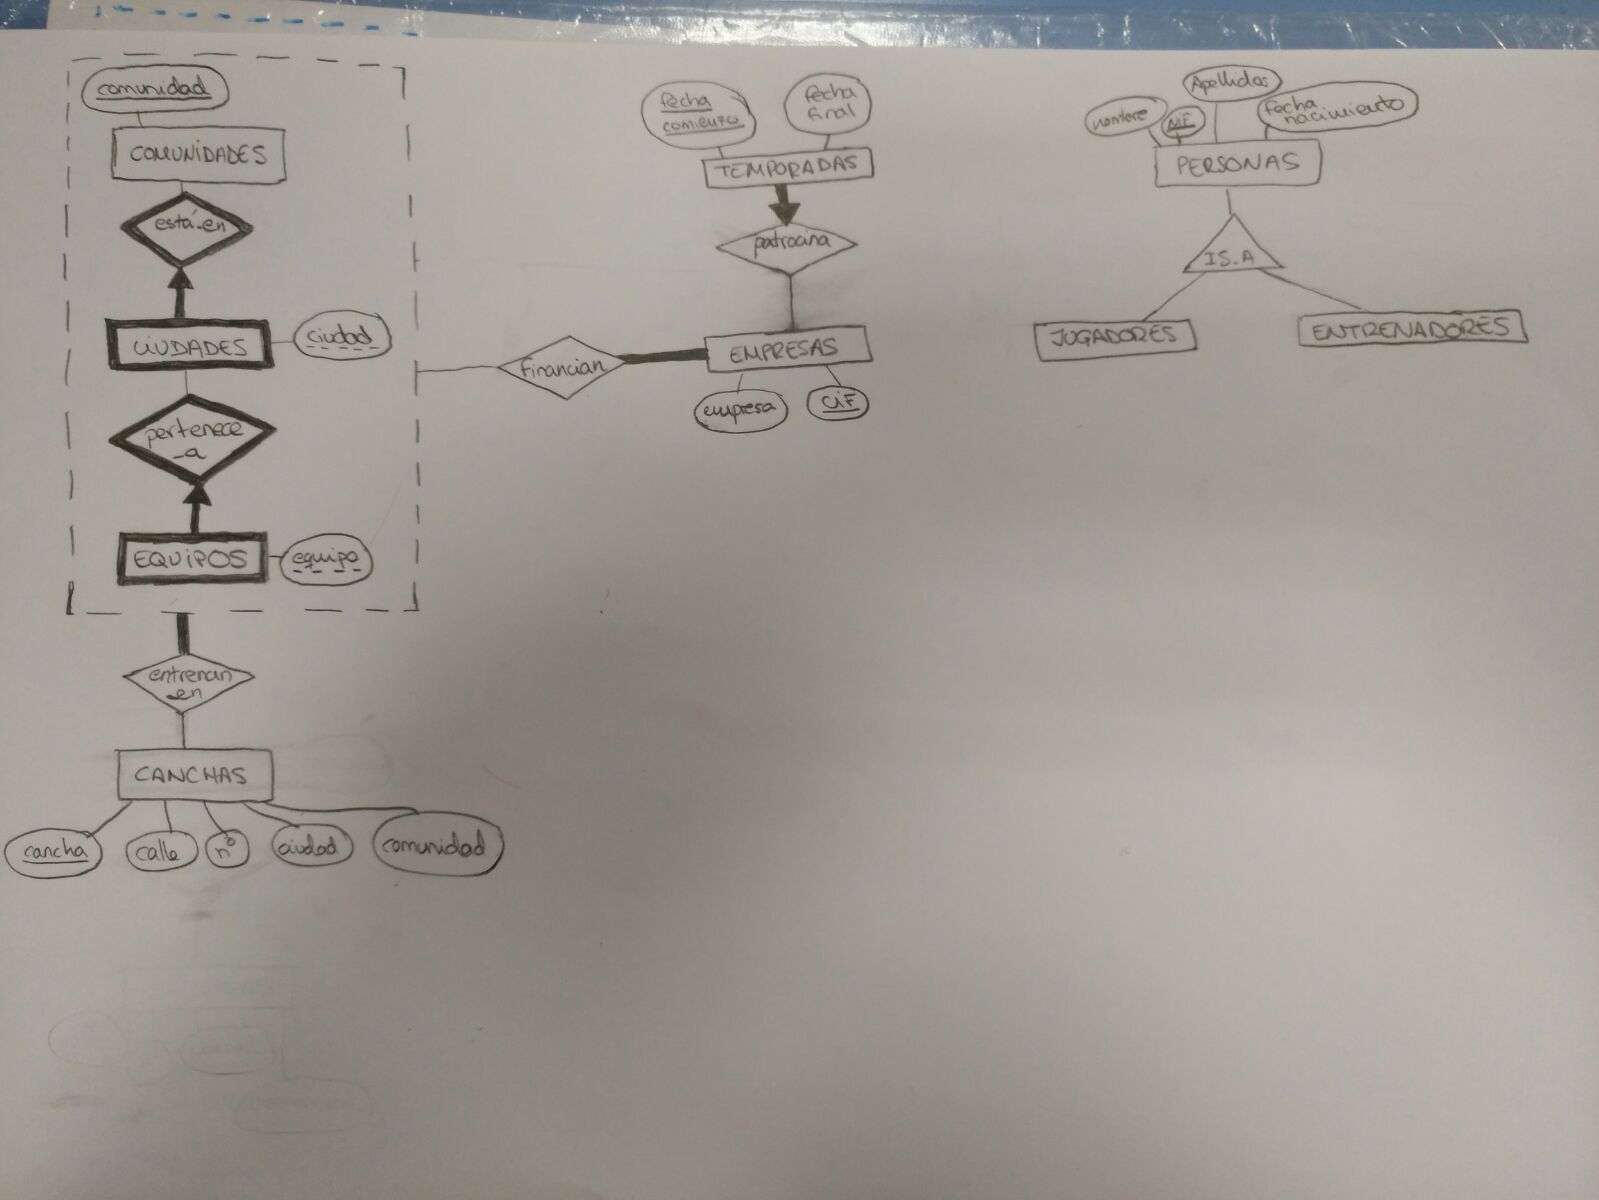 comunidad
COMUNIDADES
está-en
CIUDADES
ciudad
pertenece
-a
EQUIPOS
equipo
entrenan
-en
CANCHAS
cancha
calle
nº
ciudad
comunidad
financian
fecha
comienzo
fecha
final
TEMPORADAS
patrocina
EMPRESAS
empresa
CIF
nombre
NIF
Apellidos
fecha
nacimiento
PERSONAS
IS-A
JUGADORES
ENTRENADORES